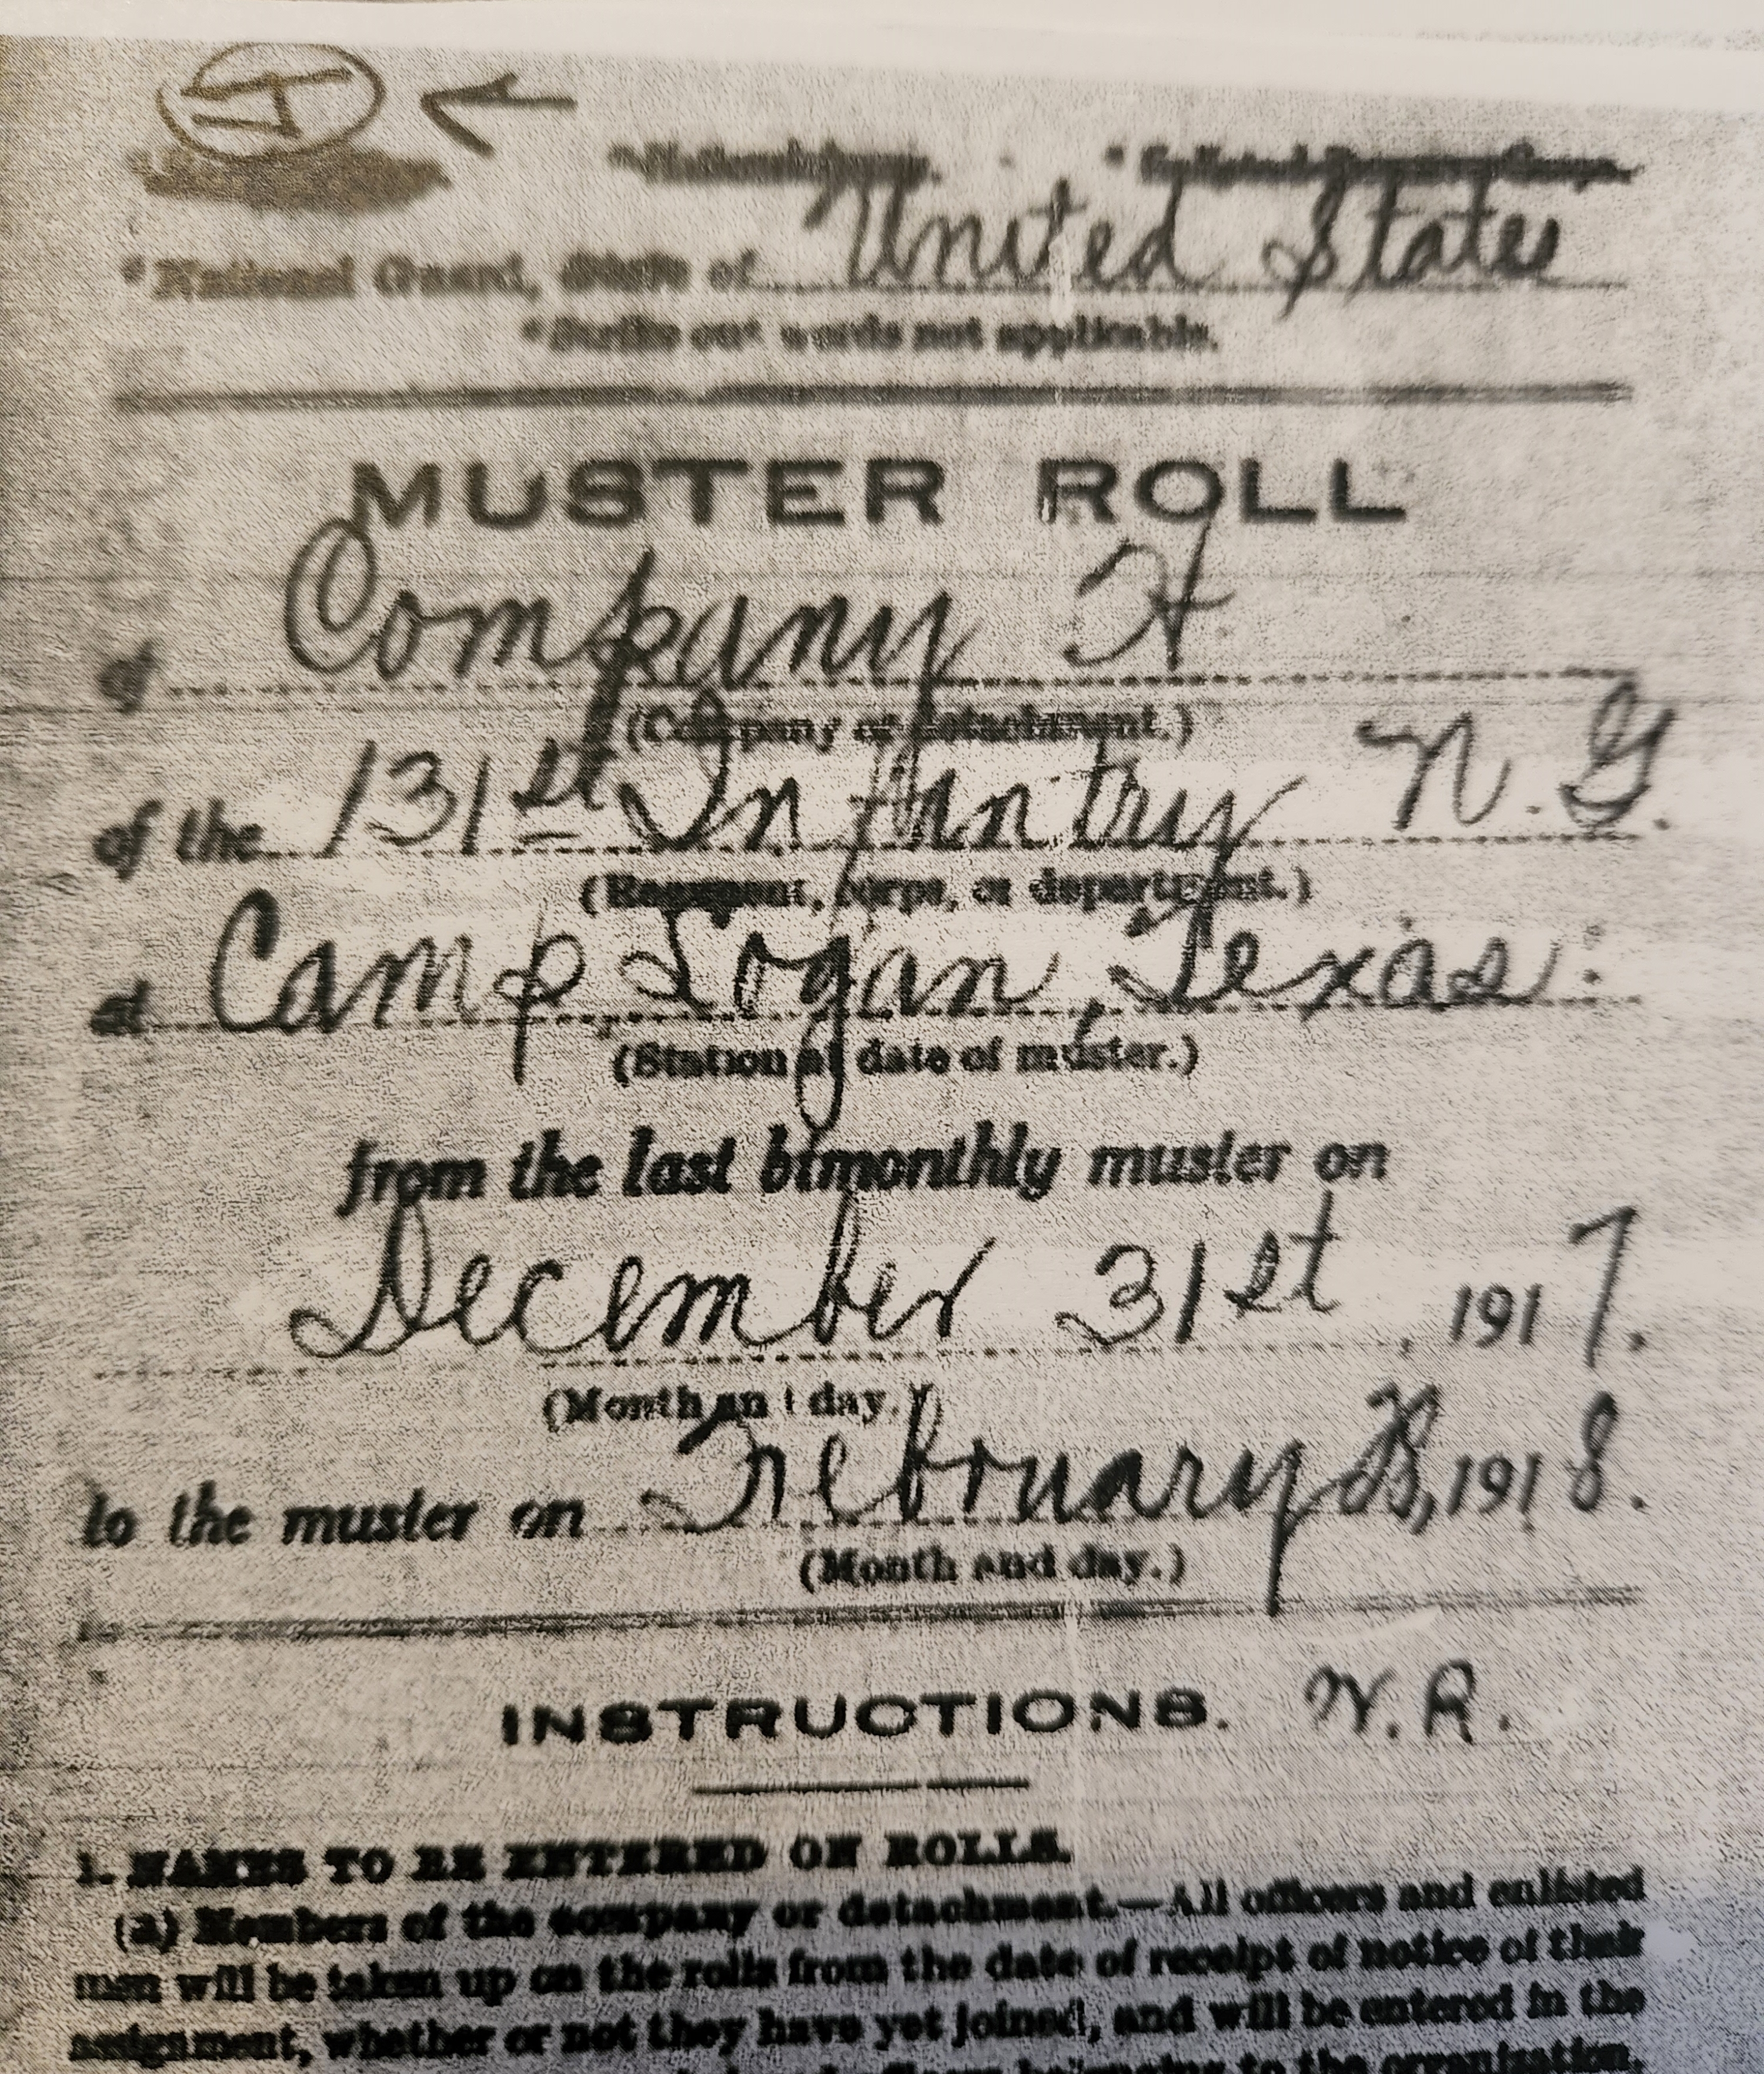 *National Guard, State of United States
*Strike out words not applicable.
MUSTER ROLL
of Company
(Company or detachment.)
of the 131st Infantry N. G.
(Regiment, corps, or department.)
at Camp Logan, Texas.
(Station at date of muster.)
from the last bimonthly muster on
December 31st, 1917.
(Month and day.)
to the muster on February 28, 1918.
(Month and day.)
INSTRUCTIONS.
1. NAMES TO BE ENTERED ON ROLLS.
(a) Members of the company or detachment.—All officers and enlisted
men will be taken up on the rolls from the date of receipt of notice of their
assignment, whether or not they have yet joined, and will be entered in the
belonging to the organization,